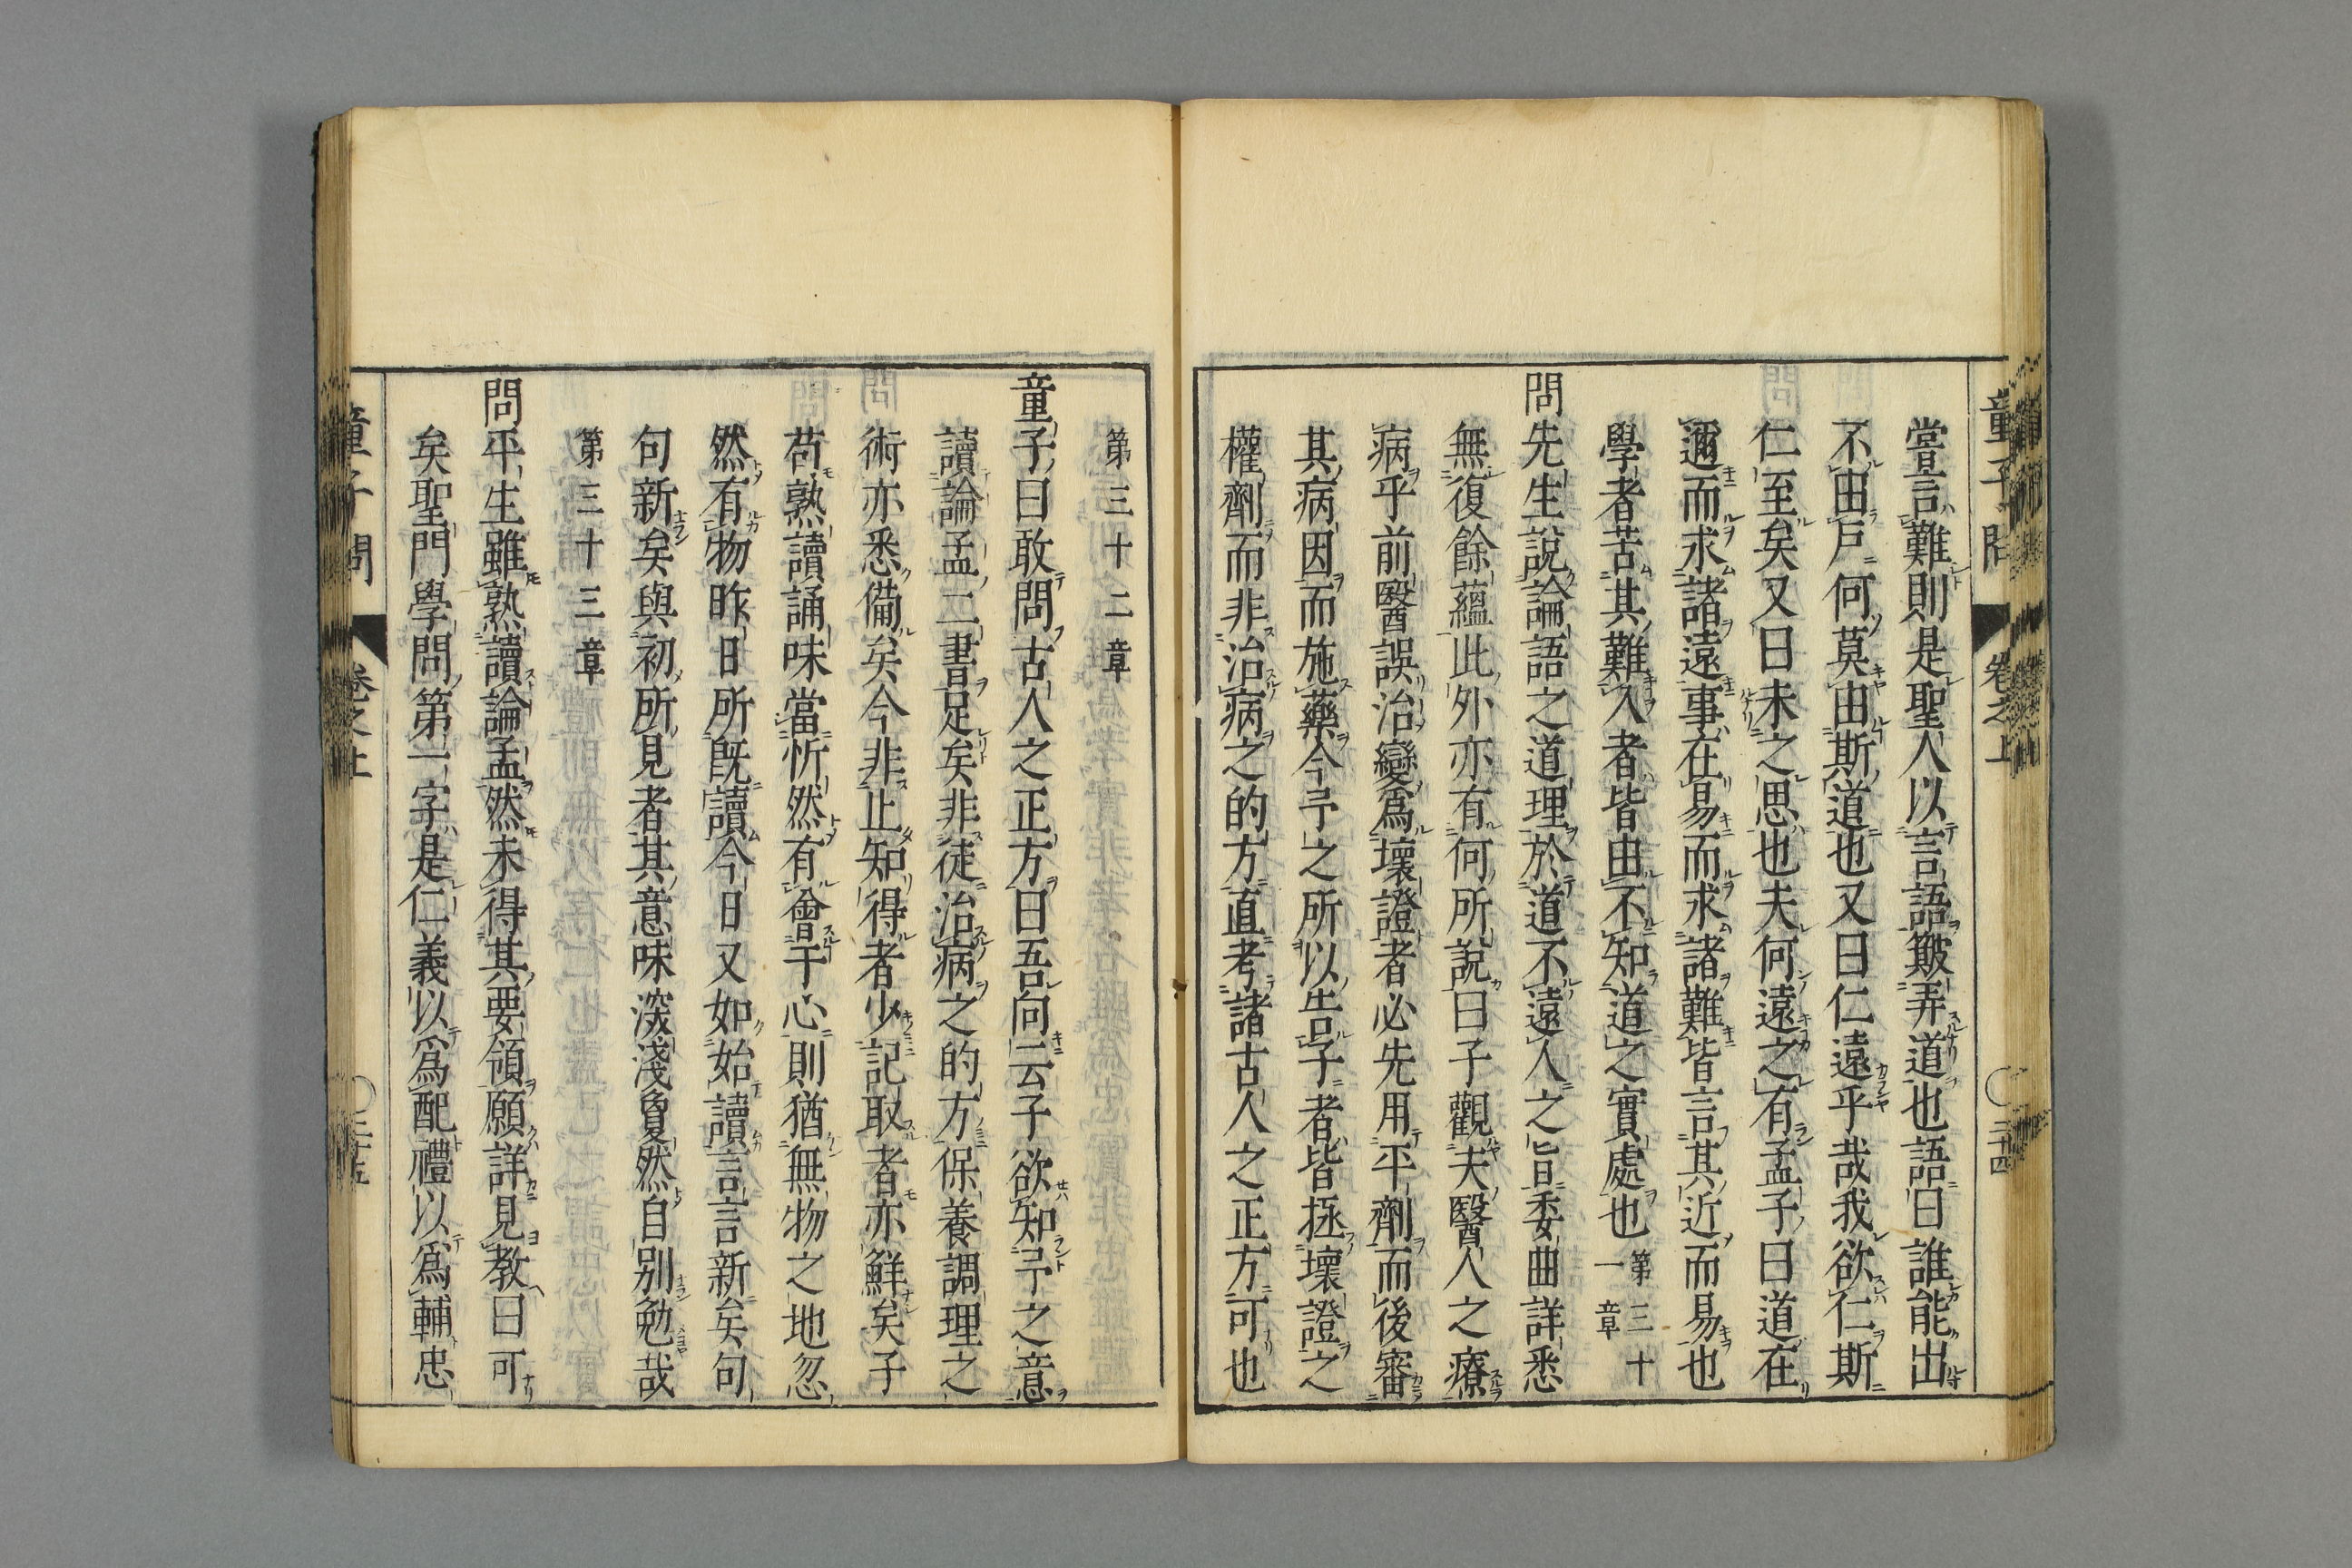 童子問 卷之上 三十四
嘗言難則是聖人以言語簸弄道也語曰誰能出
不由戶何莫由斯道也又曰仁遠乎哉我欲仁斯
仁至矣又曰未之思也夫何遠之有孟子曰道在
邇而求諸遠事在易而求諸難皆言其近而易也
學者苦其難入者皆由不知道之實處也 第三十一章
問先生說論語之道理於道不遠人之旨委曲詳悉
無復餘蘊此外亦有何所說曰子觀夫醫人之療
病乎前醫誤治變爲壞證者必先用平劑而後審
其病因而施藥今予之所以告子者皆拯壞證之
權劑而非治病之的方直考諸古人之正方可也
第三十二章
童子曰敢問古人之正方曰吾向云子欲知予之意
讀論孟二書足矣非徒治病之的方保養調理之
術亦悉備矣今非止知得者少記取者亦鮮矣子
苟熟讀誦味當忻然有會于心則猶無物之地忽
然有物昨日所既讀今日又如始讀言言新矣句
句新矣與初所見者其意味淺深夐然自別勉哉
第三十三章
問平生雖熟讀論孟然未得其要領願詳見教曰可
矣聖門學問第一字是仁義以爲配禮以爲輔忠
童子問 卷之上 三十五